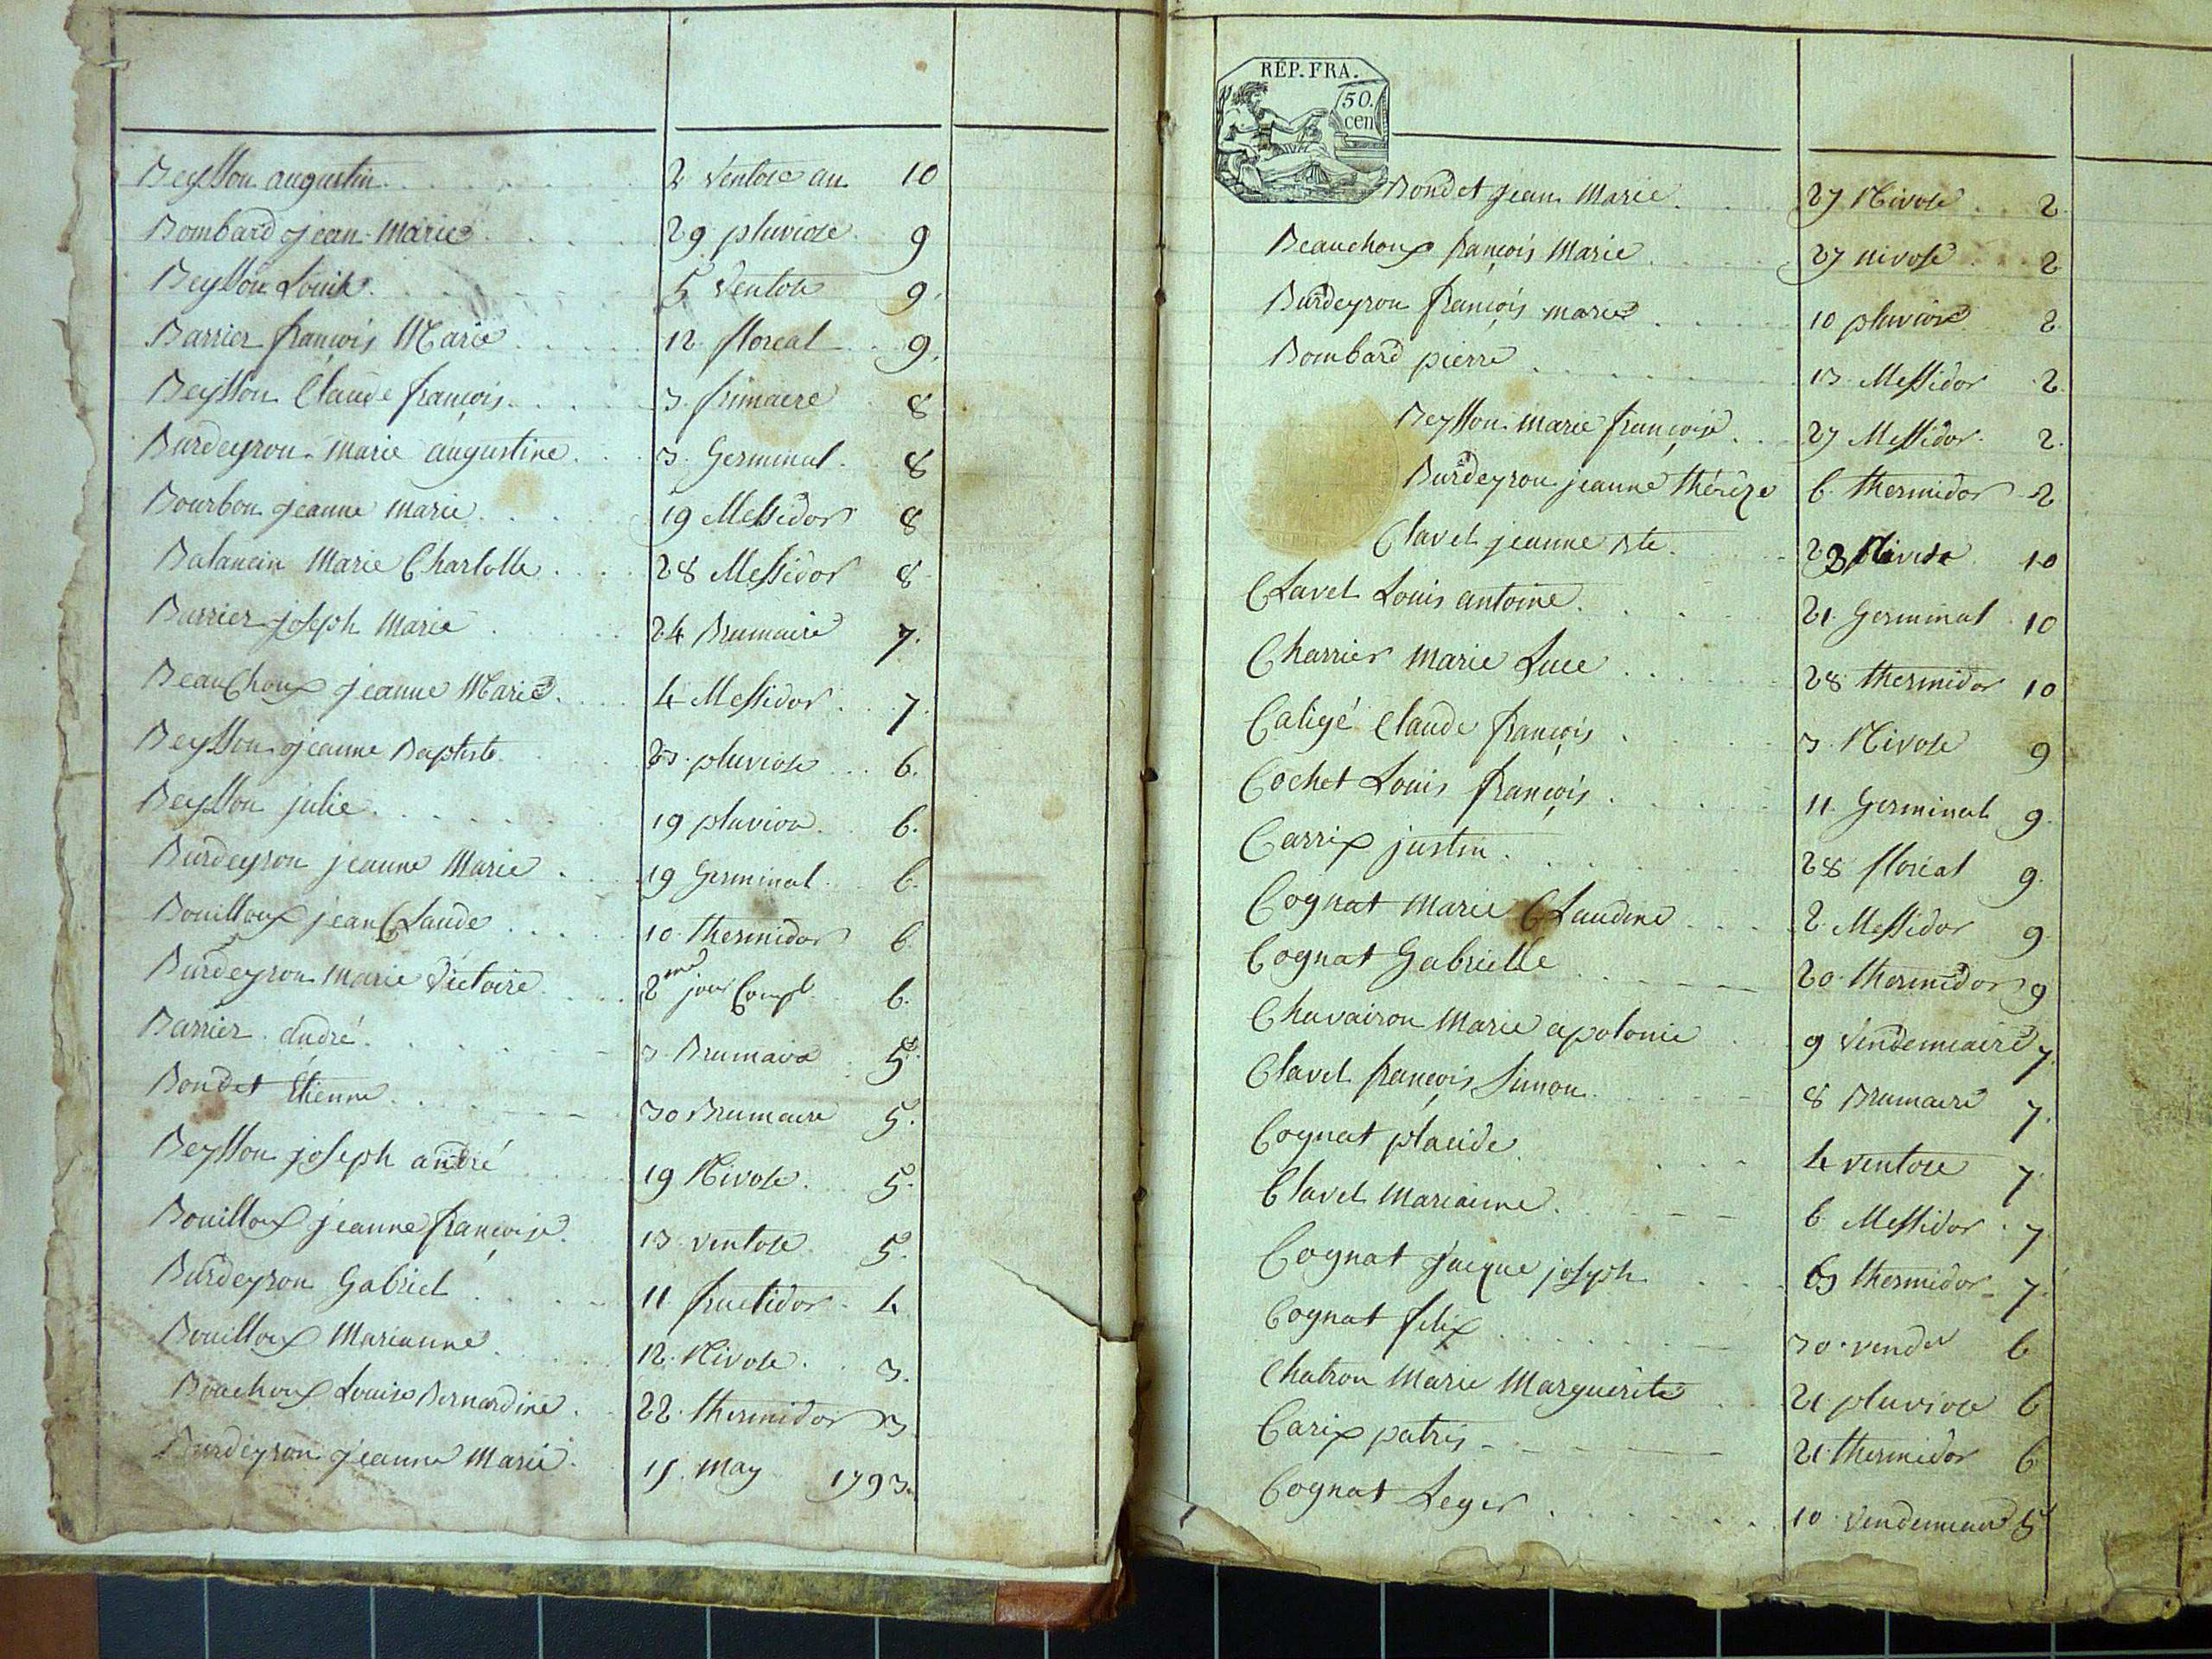 Beysson augustin 2 Ventose an 10
Bombard jean Marie 29 pluviose 9
Beysson Louise 5 Ventose 9
Barrier françois Marie 12 floreal 9
Beysson Claude françois 3 frimaire 8
Burdeyron Marie augustine 3 Germinal 8
Bourbon jeanne marie 19 Messidor 8
Balancin Marie Charlotte 28 Messidor 8
Barrier joseph Marie 24 Brumaire 7
Beauchoux jeanne Marie 4 Messidor 7
Beysson jeanne Baptiste 23 pluviose 6
Beysson julie 19 pluviose 6
Burdeyron jeanne Marie 19 Germinal 6
Bouilloux jean Claude 10 thermidor 6
Burdeyron Marie Victoire 2me jour Compl. 6
Barrier andré 3 Brumaire 5
Bondet Etienne 30 Brumaire 5
Beysson joseph andré 19 Nivose 5
Bouilloux jeanne françoise 13 ventose 5
Burdeyron Gabriel 11 fructidor 4
Bouilloux Marianne 12 Nivose 3
Bouchoux Louise Bernardine 22 thermidor 3
Burdeyron jeanne Marie may 1793
RÉP. FRA.
50.
cen
Bondet jean Marie 27 Nivose 2
Beauchoux françois Marie 27 nivose 2
Burdeyron françois marie 10 pluviose 2
Bombard pierre 13 Messidor 2
Beysson Marie françoise 27 Messidor 2
Burdeyron jeanne thérèze 6 thermidor 2
Clavel jeanne Bte. Nivose 10
Clavel Louis antoine 21 Germinal 10
Charrier Marie Luce 28 thermidor 10
Caligé Claude françois 3 Nivose 9
Cochet Louis françois 11 Germinal 9
Carrix justin 28 floréal 9
Cognat Marie Claudine 2 Messidor 9
Cognat Gabrielle 20 thermidor 9
Chavairon Marie apolonie 9 Vendemiaire 7
Clavel françois Simon 8 Brumaire 7
Cognat placide 4 ventose 7
Clavel Marianne 6 Messidor 7
Cognat jacque joseph thermidor 7
Cognat felix 30 vendre 6
Chatron Marie Marguerite 21 pluviose 6
Carix patris 21 thermidor 6
Cognat Leger 10 Vendemiaire 5